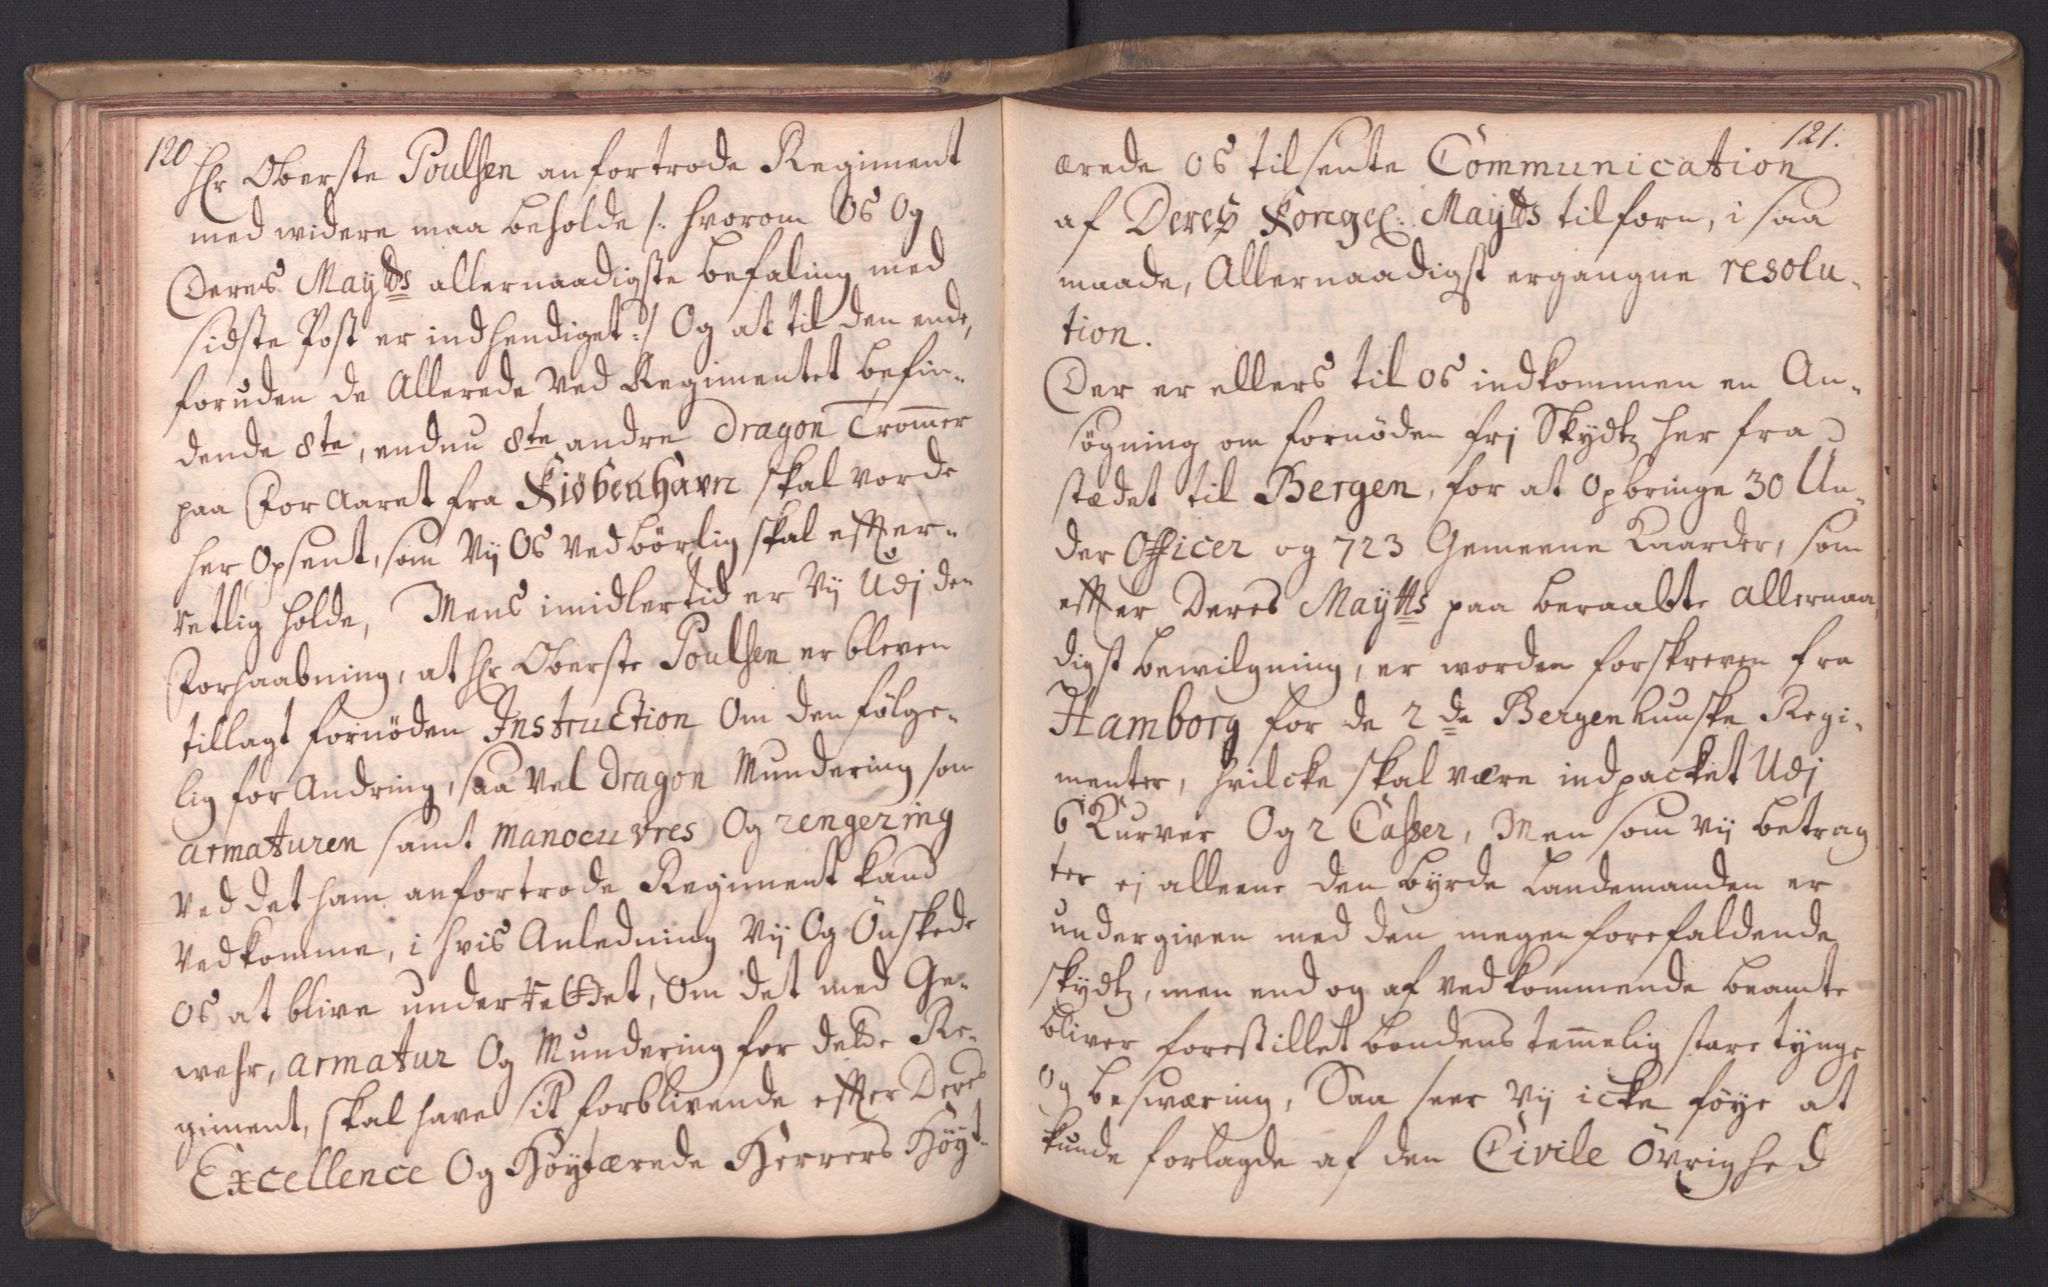 120
Hr Oberste Poulsen anfortrode Regiment
med widere maa beholde /: hvorom Os Og
Deres Maytts allernaadigste befaling med
sidste Post er indhendiget :/ Og at til den ende,
foruden de Allerede Ved Regimentet befin-
dende 8te, endnu 8te andre Dragon Trommer
paa For Aaret fra Kiöbenhavn skal vorde
her Opsent, som Vij Os Vedbörlig skal effter-
retlig holde, Mens imidlertid er Vij Udj den
Forhaabning, at Hr Oberste Poulsen er bleven
tillagt fornöden Instruction Om den fölge-
lig forandring, saa Vel Dragon Mundering som
armaturen samt manoeuvres Og rengering
Ved det ham anfortrode Regiment kand
Vedkomme, i hvis Anledning Vij Og Önskede
Os at blive underrettet, Om det med Ge-
wehr, armatur Og Mundering for dette Re-
giment, skal have sit forblivende effter Deres
Excellence Og Höytærede Herrers Höyt-
121.
ærede Os tilsente Communication
af Deres Kongel: Maytts tilforn, i saa
maade, Allernaadigst ergangne resolu-
tion.
Der er ellers til Os indkommen en An-
sögning om fornöden frj Skydtz her fra
stædet til Bergen, for at Opbringe 30 Un-
der Officer og 723 Gemeene Kaarder, som
effter Deres Maytts paa beraabte Allernaa-
digst bewilgning, er worden forskreven fra
Hamborg for de 2de Bergenhuuske Regi-
menter, hvilcke skal være indpacket Udj
6 Kurver Og 2 Casser, Men som Vij betrag
ter ej alleene den byrde Landemanden er
undergiven med den megen forefaldende
skydtz, men end og af vedkommende beamte
bliver forestillet bondens temmelig store tynge
Og beswæring, Saa seer Vij icke föye at
kunde forlagde af den Civile Övrighed